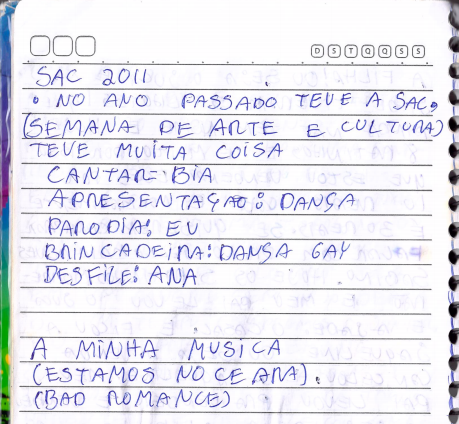 D S T Q Q S S
SAC 2011
• NO ANO PASSADO TEVE A SAC,
(SEMANA DE ARTE E CULTURA)
TEVE MUITA COISA
CANTAR: BIA
APRESENTAÇÃO: DANÇA
PARODIA: EU
BRINCADEIRA: DANSA GAY
DESFILE: ANA
A MINHA MUSICA
(ESTAMOS NO CEARA).
(BAD ROMANCE)